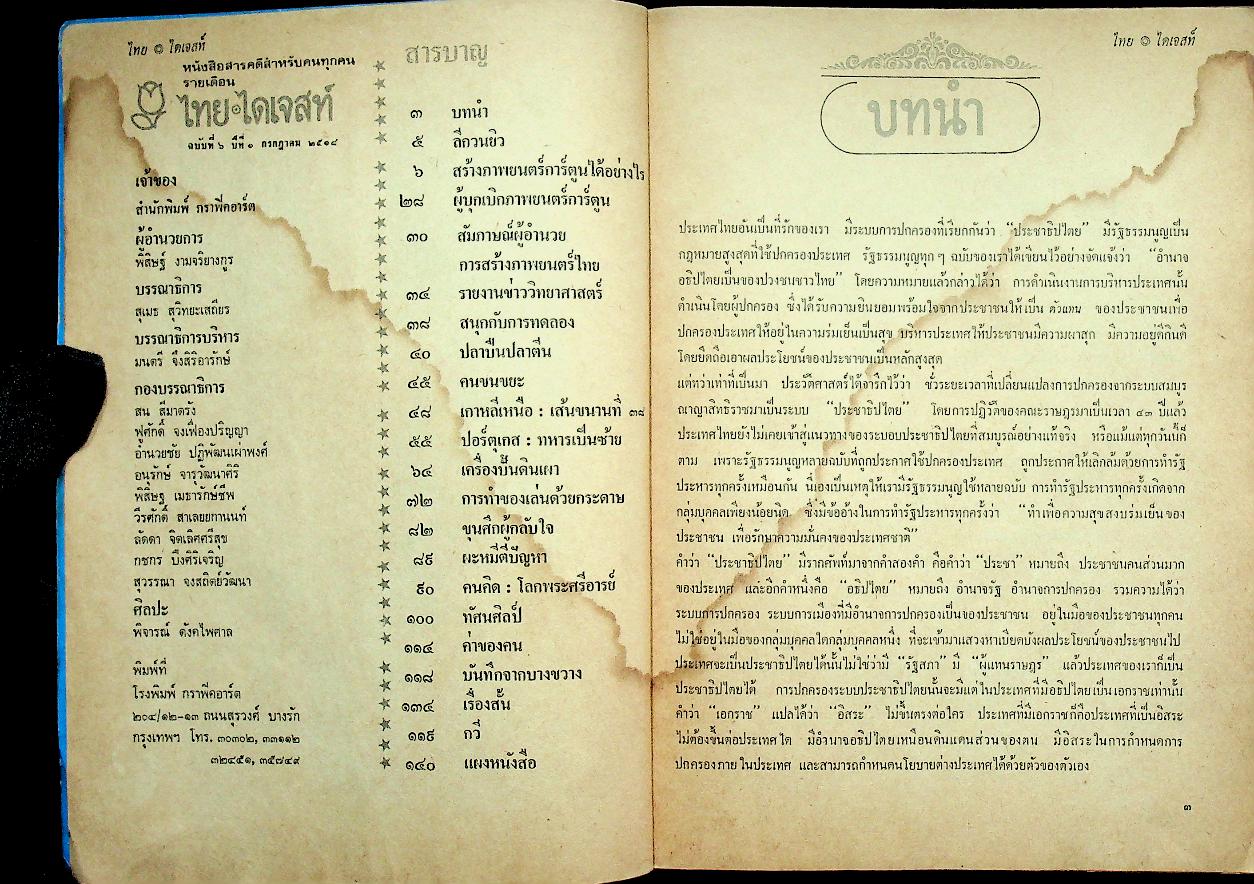 ไทย ๏ ไดเจสท์
หนังสือสารคดีสำหรับคนทุกคน
รายเดือน
ไทย·ไดเจสท์
ฉบับที่ ๖ ปีที่ ๑ กรกฎาคม ๒๕๑๘
เจ้าของ
สำนักพิมพ์ กราฟิคอาร์ต
ผู้อำนวยการ
พิสิษฐ์ งามจริยางกูร
บรรณาธิการ
สุเมธ สุวิทยะเสถียร
บรรณาธิการบริหาร
มนตรี จึงสิริอารักษ์
กองบรรณาธิการ
สน สีมาตรัง
ฟูศักดิ์ จงเฟื่องปริญญา
อำนวยชัย ปฏิพัฒน์เผ่าพงศ์
อนุรักษ์ จารุวัฒนาศิริ
พิสิษฐ เมธารักษ์ชีพ
วีรศักดิ์ สาเลยยกานนท์
ลัดดา จิตเลิศศรีสุข
กชกร บึงศิริเจริญ
สุวรรณา จงสถิตย์วัฒนา
ศิลปะ
พิจารณ์ ตังคไพศาล
พิมพ์ที่
โรงพิมพ์ กราฟิคอาร์ต
๒๐๔/๑๒-๑๓ ถนนสุรวงศ์ บางรัก
กรุงเทพฯ โทร. ๓๐๓๐๒, ๓๓๑๑๒
๓๒๔๕๑, ๓๕๘๔๙
สารบาญ
๓ บทนำ
๕ ลีกวนยิว
๖ สร้างภาพยนตร์การ์ตูนได้อย่างไร
๒๘ ผู้บุกเบิกภาพยนตร์การ์ตูน
๓๐ สัมภาษณ์ผู้อำนวย
การสร้างภาพยนตร์ไทย
๓๔ รายงานข่าววิทยาศาสตร์
๓๘ สนุกกับการทดลอง
๔๐ ปลาปืนปลาตีน
๔๕ คนขนขยะ
๔๘ เกาหลีเหนือ : เส้นขนานที่ ๓๘
๕๕ ปอร์ตุเกส : ทหารเป็นซ้าย
๖๔ เครื่องปั้นดินเผา
๗๒ การทำของเล่นด้วยกระดาษ
๘๒ ขุนศึกผู้กลับใจ
๘๙ ผะหมีตีปัญหา
๙๐ คนคิด : โลกพระศรีอารย์
๑๐๐ ทัศนศิลป์
๑๑๔ ค่าของคน
๑๑๘ บันทึกจากบางขวาง
๑๓๔ เรื่องสั้น
๑๑๙ กวี
๑๔๐ แผงหนังสือ
ไทย ๏ ไดเจสท์
บทนำ
ประเทศไทยอันเป็นที่รักของเรา มีระบบการปกครองที่เรียกกันว่า “ประชาธิปไตย” มีรัฐธรรมนูญเป็น
กฎหมายสูงสุดที่ใช้ปกครองประเทศ รัฐธรรมนูญทุก ๆ ฉบับของเราได้เขียนไว้อย่างชัดแจ้งว่า “อำนาจ
อธิปไตยเป็นของปวงชนชาวไทย” โดยความหมายแล้วกล่าวได้ว่า การดำเนินงานการบริหารประเทศนั้น
ดำเนินโดยผู้ปกครอง ซึ่งได้รับความยินยอมพร้อมใจจากประชาชนให้เป็น ตัวแทน ของประชาชนเพื่อ
ปกครองประเทศให้อยู่ในความร่มเย็นเป็นสุข บริหารประเทศให้ประชาชนมีความผาสุก มีความอยู่ดีกินดี
โดยยึดถือเอาผลประโยชน์ของประชาชนเป็นหลักสูงสุด
แต่ทว่าเท่าที่เป็นมา ประวัติศาสตร์ได้จารึกไว้ว่า ชั่วระยะเวลาที่เปลี่ยนแปลงการปกครองจากระบบสมบูร
ณาญาสิทธิราชมาเป็นระบบ “ประชาธิปไตย” โดยการปฏิวัติของคณะราษฎรมาเป็นเวลา ๔๓ ปีแล้ว
ประเทศไทยยังไม่เคยเข้าสู่แนวทางของระบอบประชาธิปไตยที่สมบูรณ์อย่างแท้จริง หรือแม้แต่ทุกวันนี้ก็
ตาม เพราะรัฐธรรมนูญหลายฉบับที่ถูกประกาศใช้ปกครองประเทศ ถูกประกาศให้เลิกล้มด้วยการทำรัฐ
ประหารทุกครั้งเหมือนกัน นี่เองเป็นเหตุให้เรามีรัฐธรรมนูญใช้หลายฉบับ การทำรัฐประหารทุกครั้งเกิดจาก
กลุ่มบุคคลเพียงน้อยนิด ซึ่งมีข้ออ้างในการทำรัฐประหารทุกครั้งว่า “ทำเพื่อความสุขสงบร่มเย็นของ
ประชาชน เพื่อรักษาความมั่นคงของประเทศชาติ”
คำว่า “ประชาธิปไตย” มีรากศัพท์มาจากคำสองคำ คือคำว่า “ประชา” หมายถึง ประชาชนคนส่วนมาก
ของประเทศ และอีกคำหนึ่งคือ “อธิปไตย” หมายถึง อำนาจรัฐ อำนาจการปกครอง รวมความได้ว่า
ระบบการปกครอง ระบบการเมืองที่มีอำนาจการปกครองเป็นของประชาชน อยู่ในมือของประชาชนทุกคน
ไม่ใช่อยู่ในมือของกลุ่มบุคคลใดกลุ่มบุคคลหนึ่ง ที่จะเข้ามาแสวงหาเบียดบังผลประโยชน์ของประชาชนไป
ประเทศจะเป็นประชาธิปไตยได้นั้นไม่ใช่ว่ามี “รัฐสภา” มี “ผู้แทนราษฎร” แล้วประเทศของเราก็เป็น
ประชาธิปไตยได้ การปกครองระบบประชาธิปไตยนั้นจะมีแต่ในประเทศที่มีอธิปไตยเป็นเอกราชเท่านั้น
คำว่า “เอกราช” แปลได้ว่า “อิสระ” ไม่ขึ้นตรงต่อใคร ประเทศที่มีเอกราชก็คือประเทศที่เป็นอิสระ
ไม่ต้องขึ้นต่อประเทศใด มีอำนาจอธิปไตยเหนือดินแดนส่วนของตน มีอิสระในการกำหนดการ
ปกครองภายในประเทศ และสามารถกำหนดนโยบายต่างประเทศได้ด้วยตัวของตัวเอง
๓